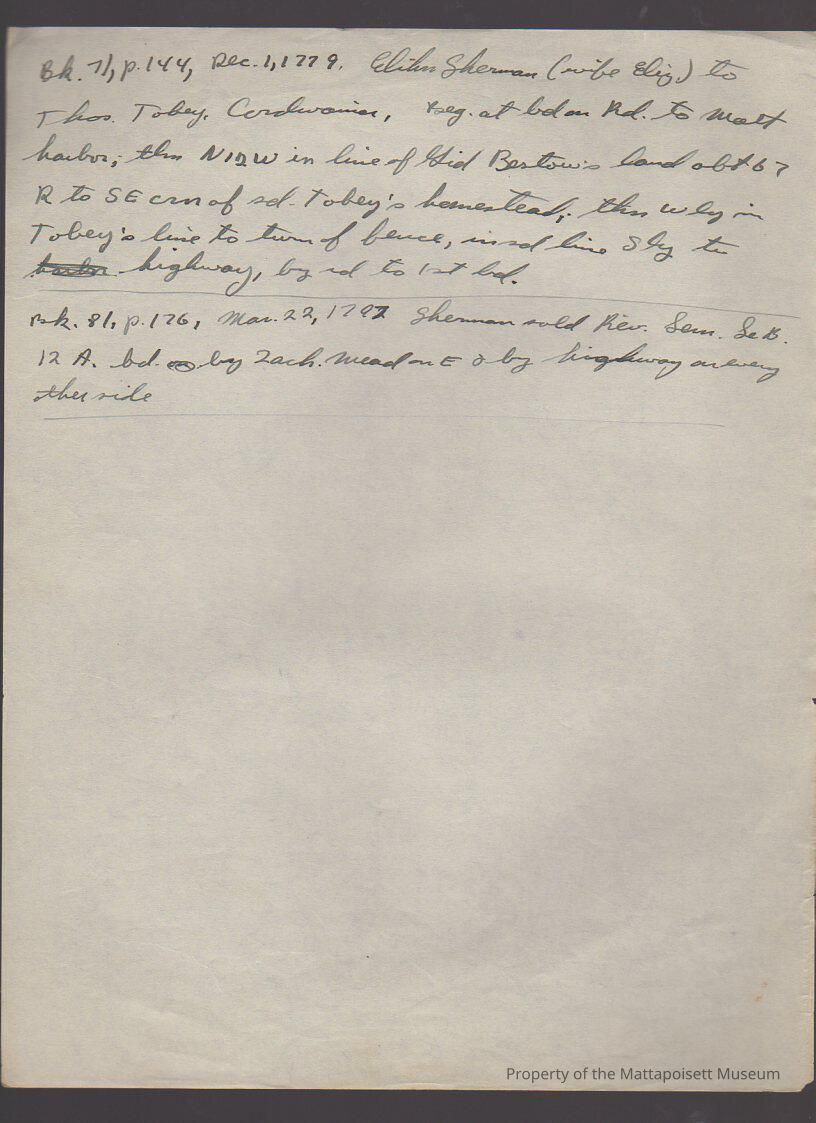 Bk. 71, p. 144, Dec. 1, 1779. Elihu Sherman (wife Eliz.) to
Thos. Tobey, Cordwainer, Beg. at bd on Rd. to Matt
harbor; thn N12W in line of Gid Barstow's land abt 67
R to SE crn of sd. Tobey's homestead; thn Wly in
Tobey's line to turn of fence, in sd line Sly to
highway, by rd to 1st bd.
Bk. 81, p. 176, Mar. 22, 1797 Sherman sold Rev. Lem. Le B.
12 A. bd. by Zach. Mead on E & by highway on every
other side
Property of the Mattapoisett Museum